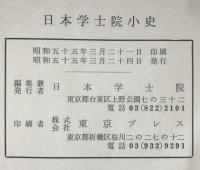 日本学士院小史
昭和五十五年三月二十一日 印刷
昭和五十五年三月二十四日 発行
編集兼発行者 日本学士院
東京都台東区上野公園七の三十二
電話 03(822)2101
印刷者 株式会社 東京プレス
東京都板橋区桜川二の二七の十二
電話 03(932)9291